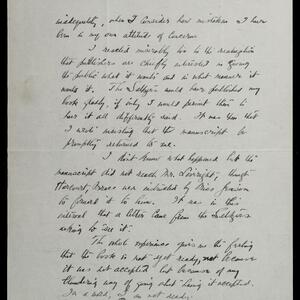 inadequately, when I consider how mistaken I have
been in my own attitude of concern.
I reacted miserably too to the realization
that publishers are chiefly interested in giving
the public what it wants and in what manner it
wants it. The Seltzers would have published my
book gladly, if only I would permit them to
have it all differently said. It was then that
I wrote insisting that the manuscript be
promptly returned to me.
I don't know what happened but the
manuscript did not reach Mr. Liveright, though
Harcourt, Brace was instructed by Miss
to forward it to him. It was in this
interval that a letter came from the Seltzers
asking to see it.
The whole experience gives me the feeling
that the book is not yet ready, not because
it was not accepted but because of my
blundering way of going about having it accepted.
In a word, I am not ready.